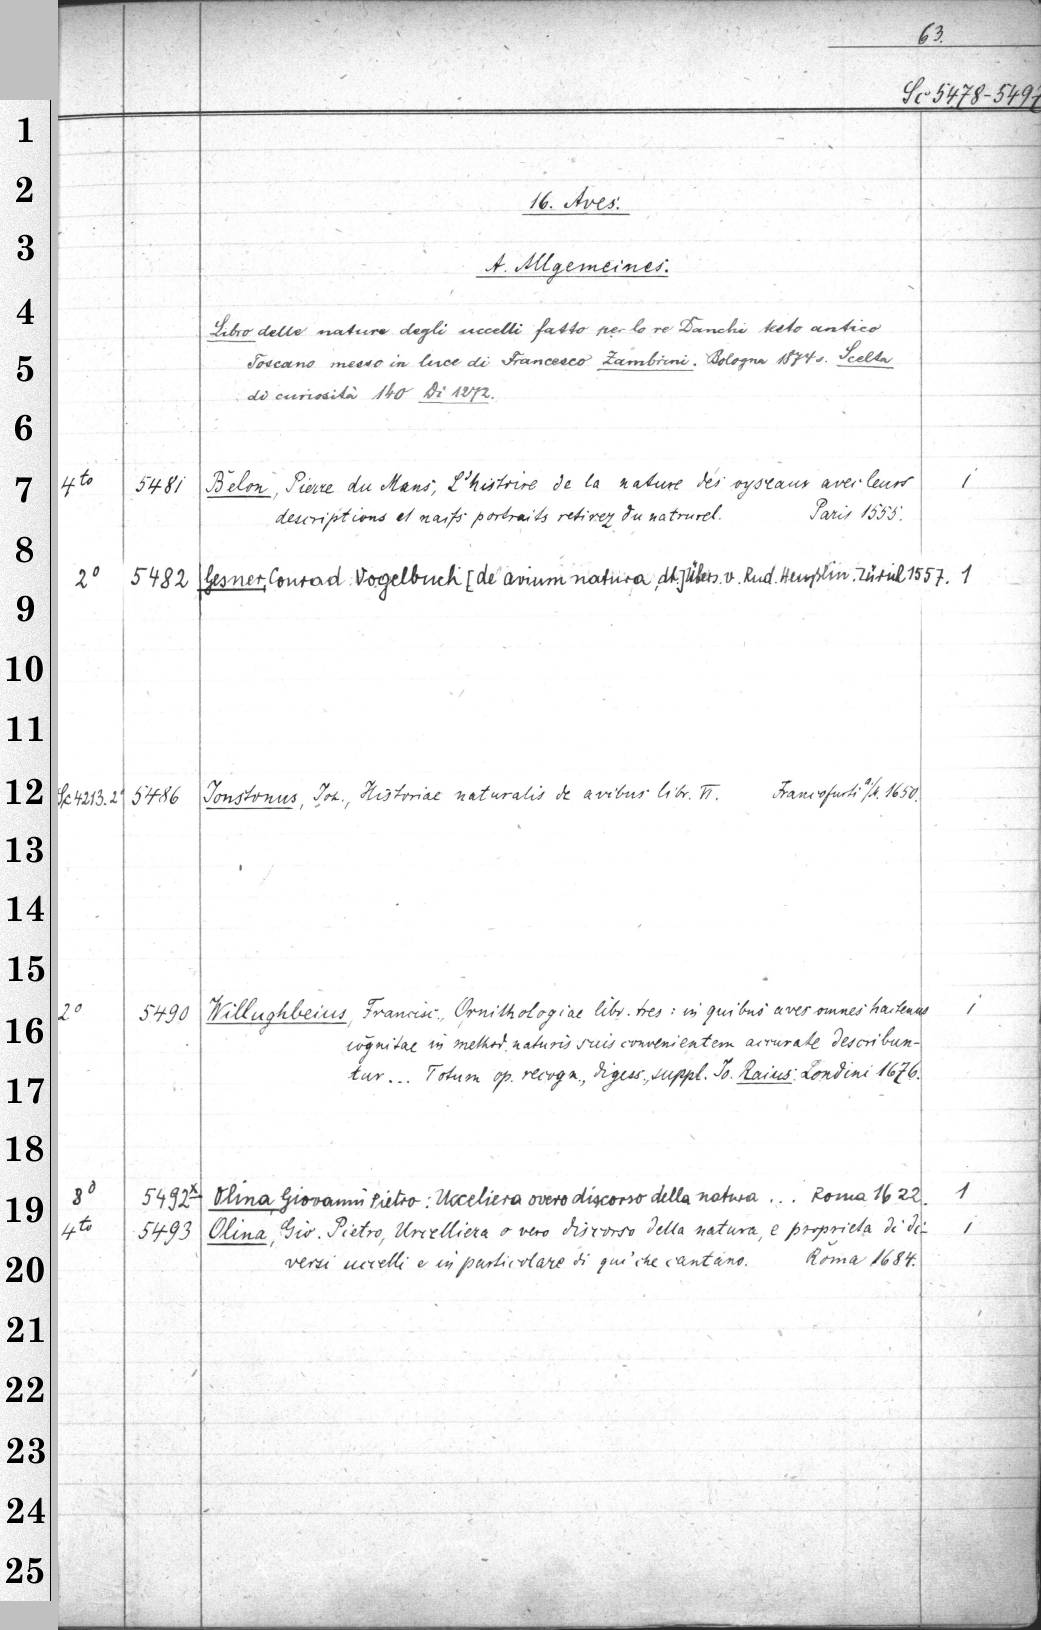 63.
Sc 5478-5497
1
2
16. Aves.
3
A. Allgemeines.
4
Libro delle nature degli uccelli fatto per lo re Danchi testo antico
5
Toscano messo in luce di Francesco Zambrini. Bologna 1874 s. Scelta
di curiosità 140 Di 1272.
6
7
4to 5481 Belon, Pierre du Mans, L'histoire de la nature des oyseaux avec leurs 1
descriptions et naifs portraits retirez du naturel. Paris 1555.
8
2° 5482 Gesner, Conrad Vogelbuch [de avium natura, dt.] Übers. v. Rud. Heusslin. Zürich 1557. 1
9
10
11
12
Sc 4213.2° 5486 Jonstonus, Joh., Historiae naturalis de avibus libr. VI. Francofurti a/M. 1650.
13
14
15
2° 5490 Willughbeius, Francisc., Ornithologiae libr. tres: in quibus aves omnes hactenus 1
16
cognitae in method. naturis suis convenientem accurate describun-
17
tur ... Totum op. recogn., digess., suppl. Jo. Raius. Londini 1676.
18
19
8° 5492x Olina, Giovanni Pietro: Ucceliera overo discorso della natura ... Roma 1622. 1
4to 5493 Olina, Gio. Pietro, Uccelliera o vero discorso della natura, e proprieta di di- 1
20
versi uccelli e in particolare di qui che cantano. Roma 1684.
21
22
23
24
25